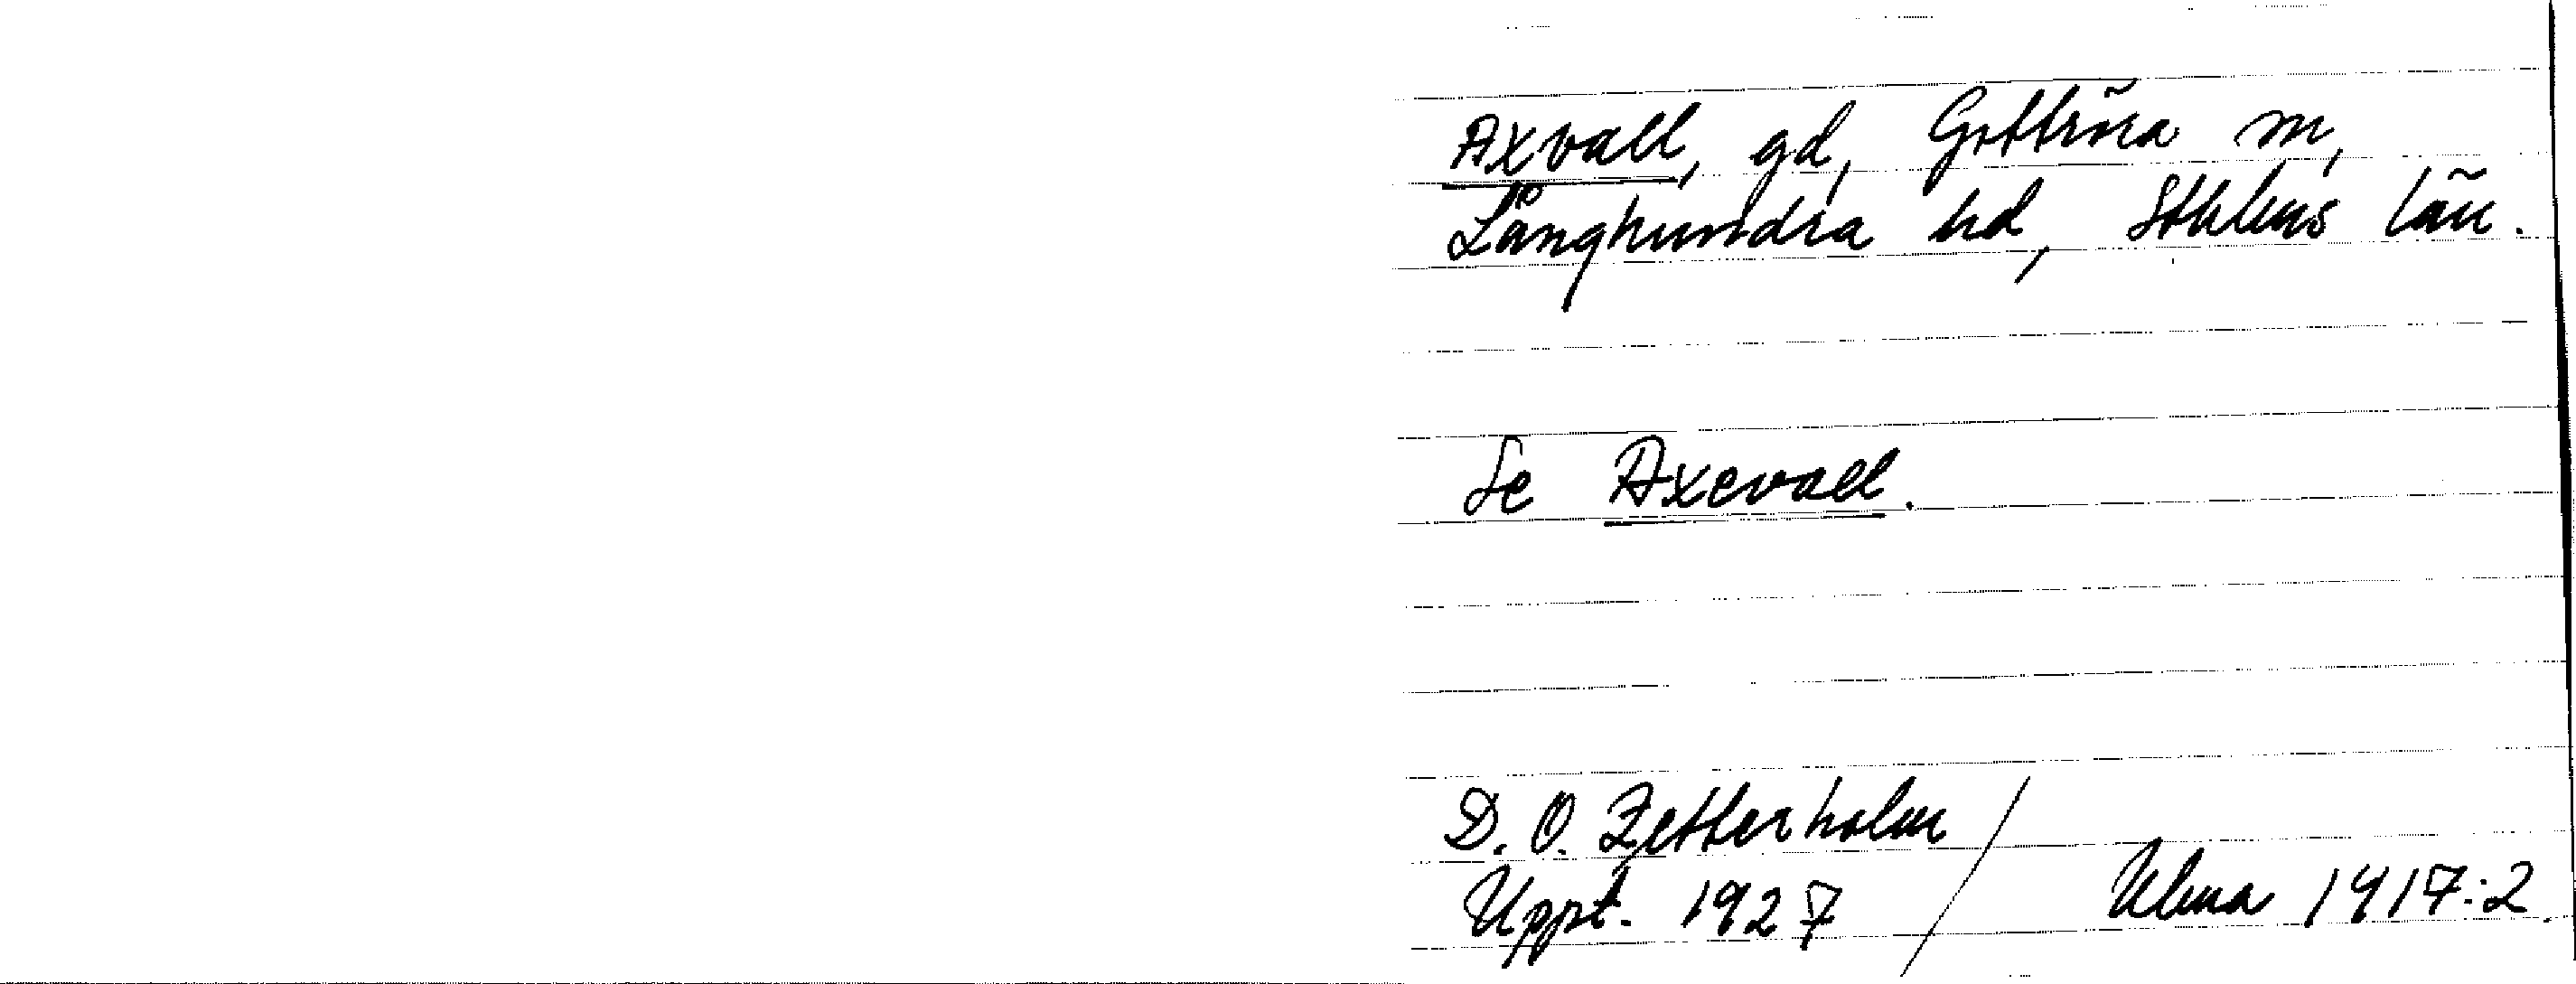 Axvall, gd, Gottröra sn,
Långhundra hd, Sthlms län.
Se Axevall.
D. O. Zetterholm
Uppt. 1927 / Ulma 1917:2.